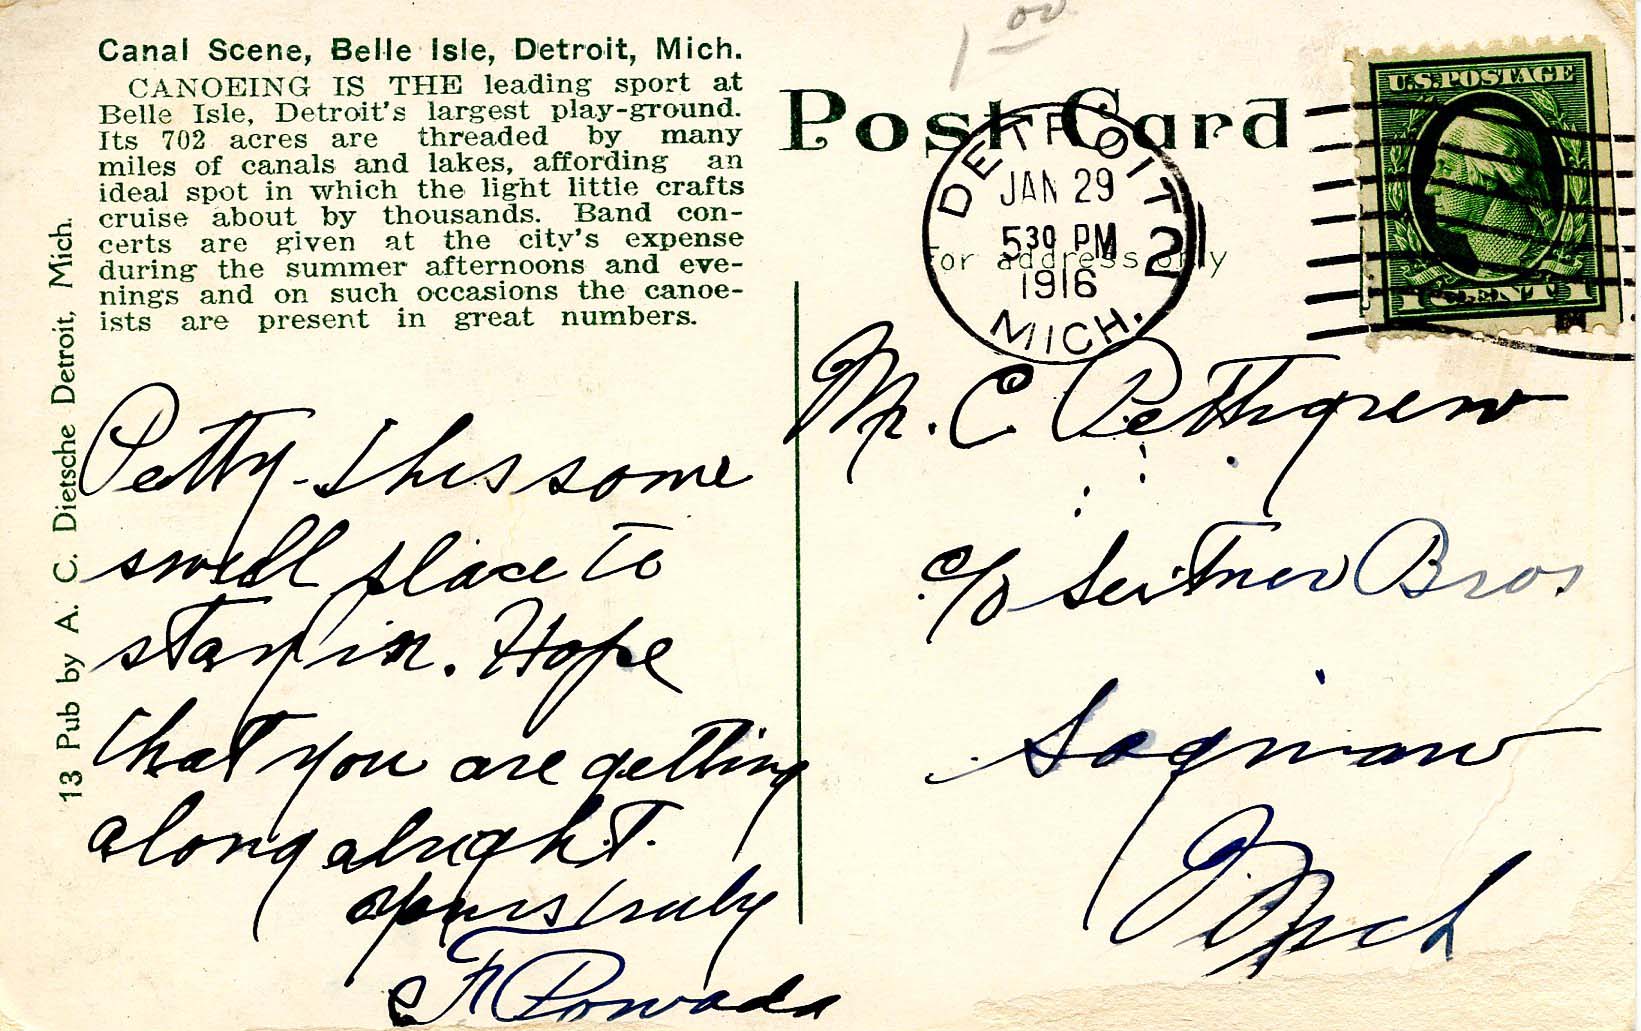 1 00
Canal Scene, Belle Isle, Detroit, Mich.
CANOEING IS THE leading sport at
Belle Isle, Detroit's largest play-ground.
Its 702 acres are threaded by many
miles of canals and lakes, affording an
ideal spot in which the light little crafts
cruise about by thousands. Band con-
certs are given at the city's expense
during the summer afternoons and eve-
nings and on such occasions the canoe-
ists are present in great numbers.
13 Pub by A. C. Dietsche Detroit, Mich.
Petty - This some
swell place to
stay in. Hope
that you are getting
along alright.
yours truly
Post Card
For address only
DETROIT
JAN 29
530 PM
1916
MICH.
2
U.S. POSTAGE
1 CENT 1
Mr. C Petthgrew
c/o Seitner Bros
Saginaw
Mich